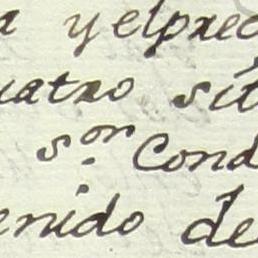 a y el prec
uatro sit
s.or Cond
enido de